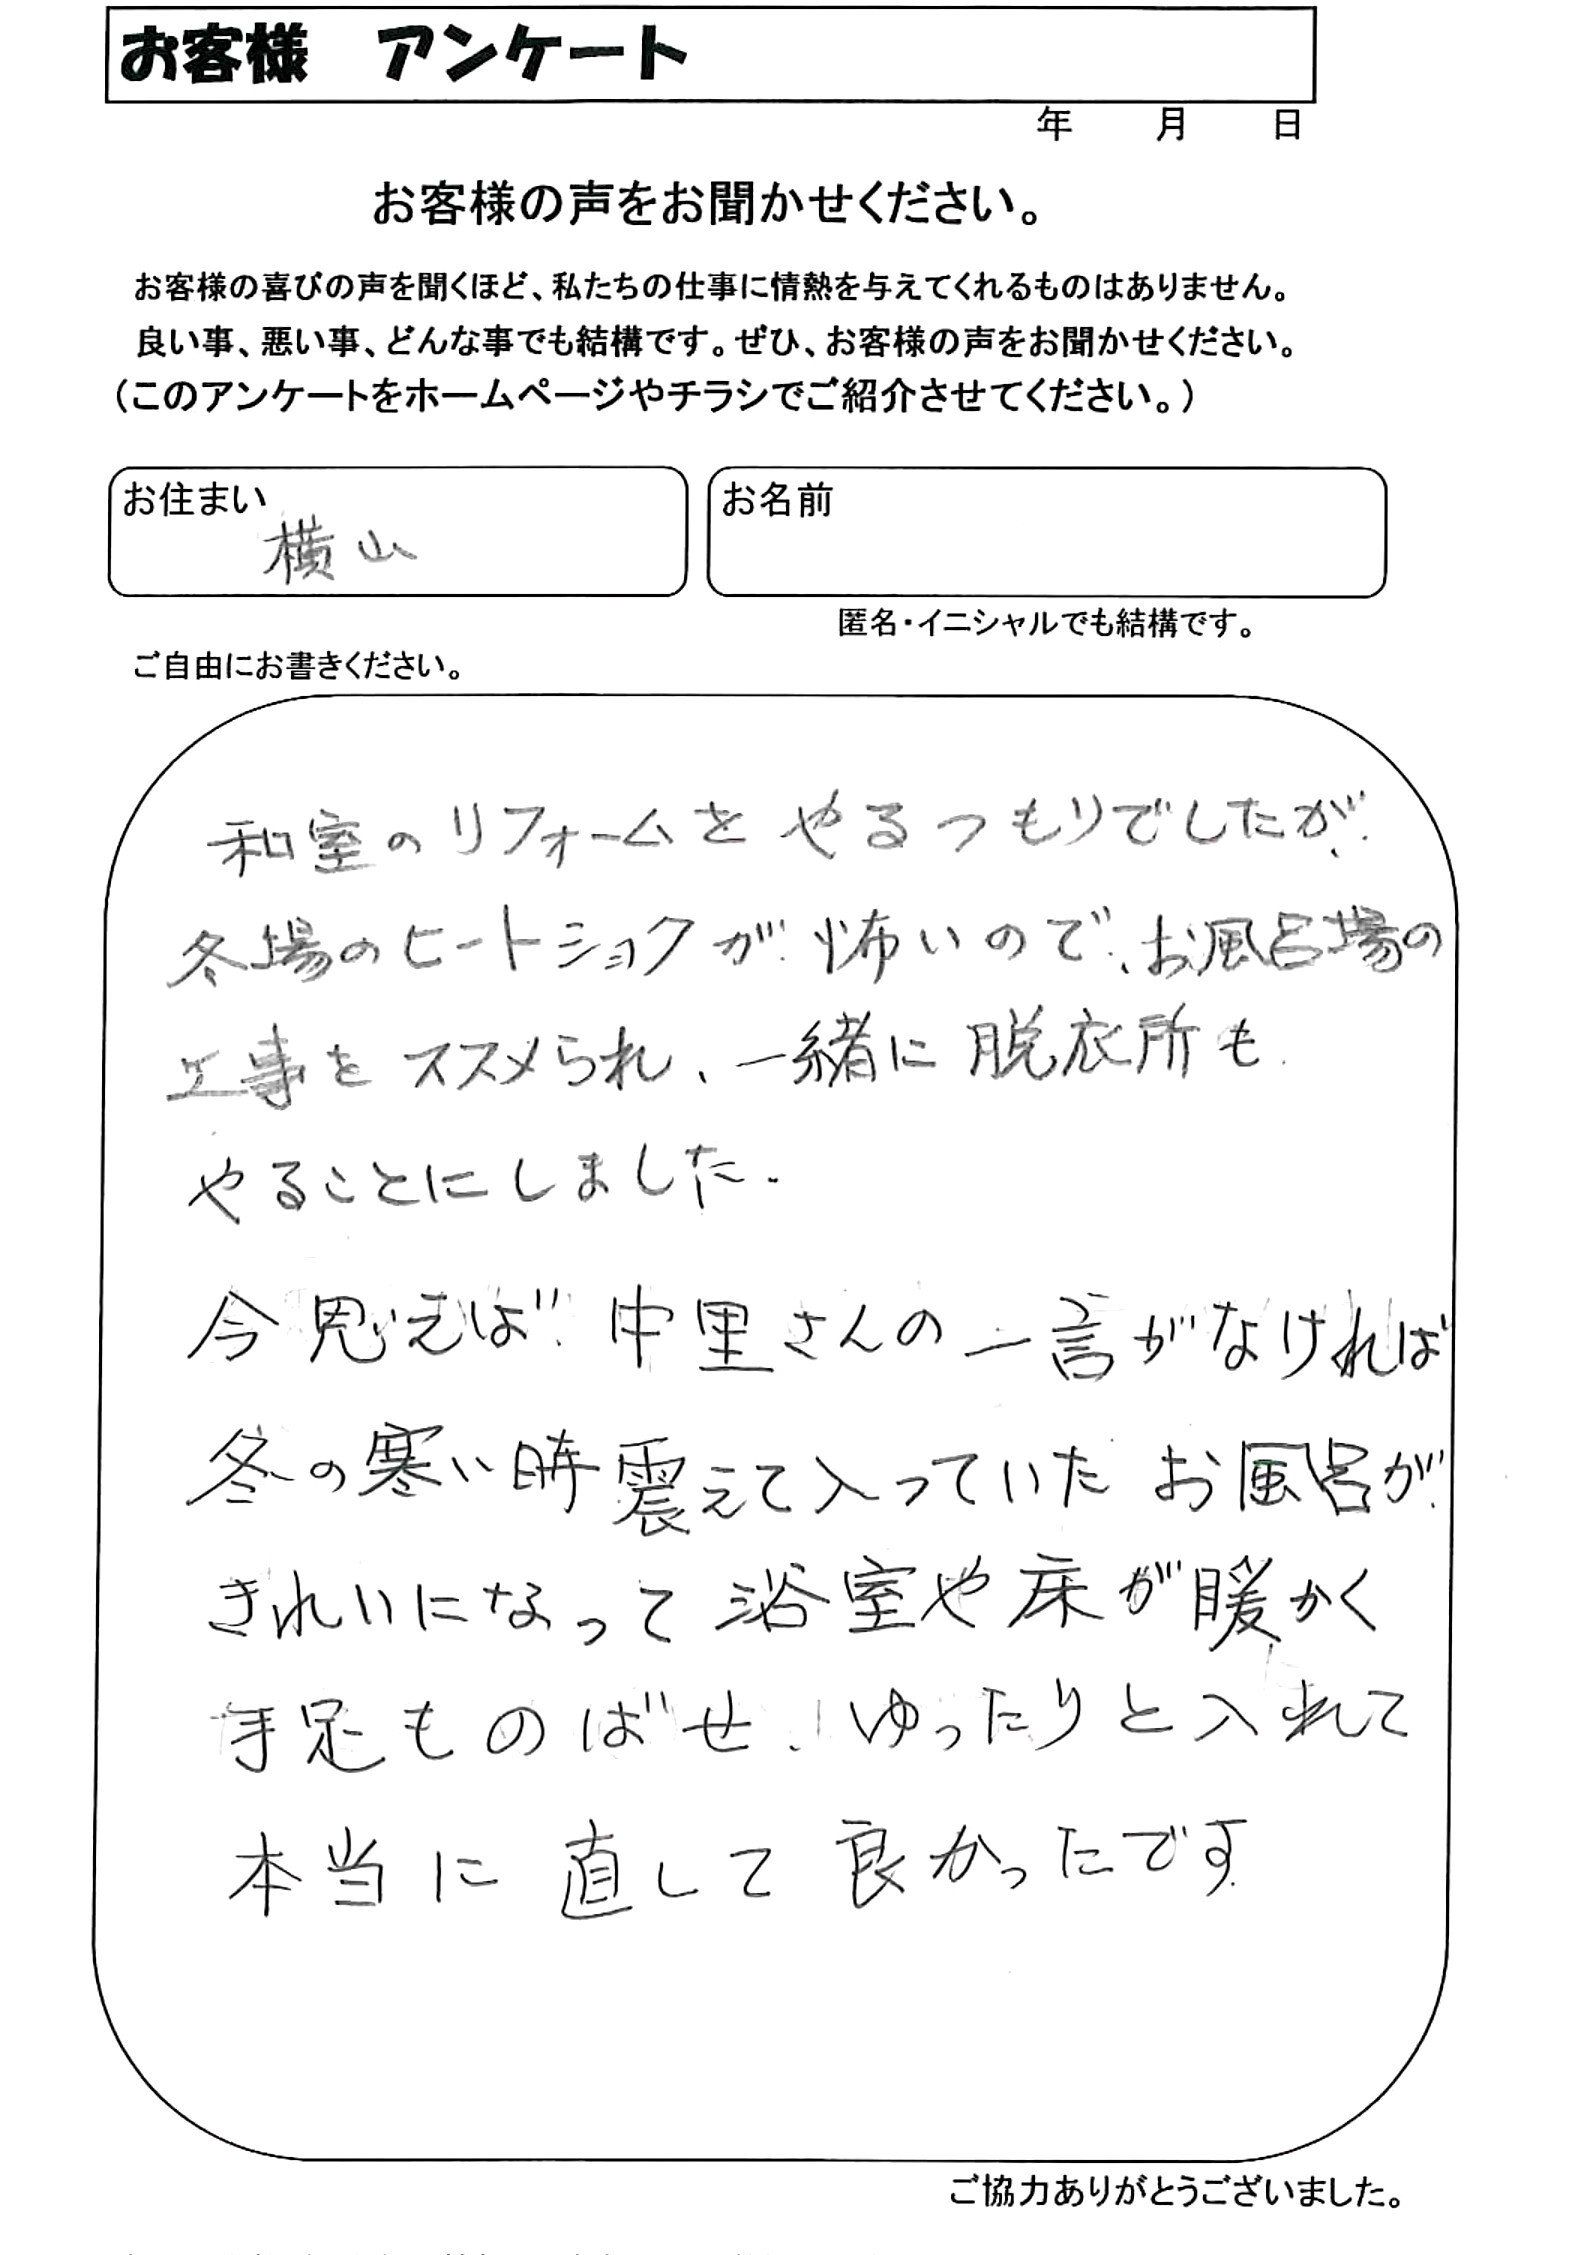 お客様　アンケート
年　月　日
お客様の声をお聞かせください。
お客様の喜びの声を聞くほど、私たちの仕事に情熱を与えてくれるものはありません。
良い事、悪い事、どんな事でも結構です。ぜひ、お客様の声をお聞かせください。
（このアンケートをホームページやチラシでご紹介させてください。）
お住まい
横山
お名前
匿名・イニシャルでも結構です。
ご自由にお書きください。
和室のリフォームをやるつもりでしたが、
冬場のヒートショクが怖いので、お風呂場の
工事をススメられ、一緒に脱衣所も
やることにしました.
今思えば中里さんの一言がなければ
冬の寒い時震えて入っていたお風呂が
きれいになって浴室や床が暖かく
手足ものばせ、ゆったりと入れて
本当に直して良かったです
ご協力ありがとうございました。